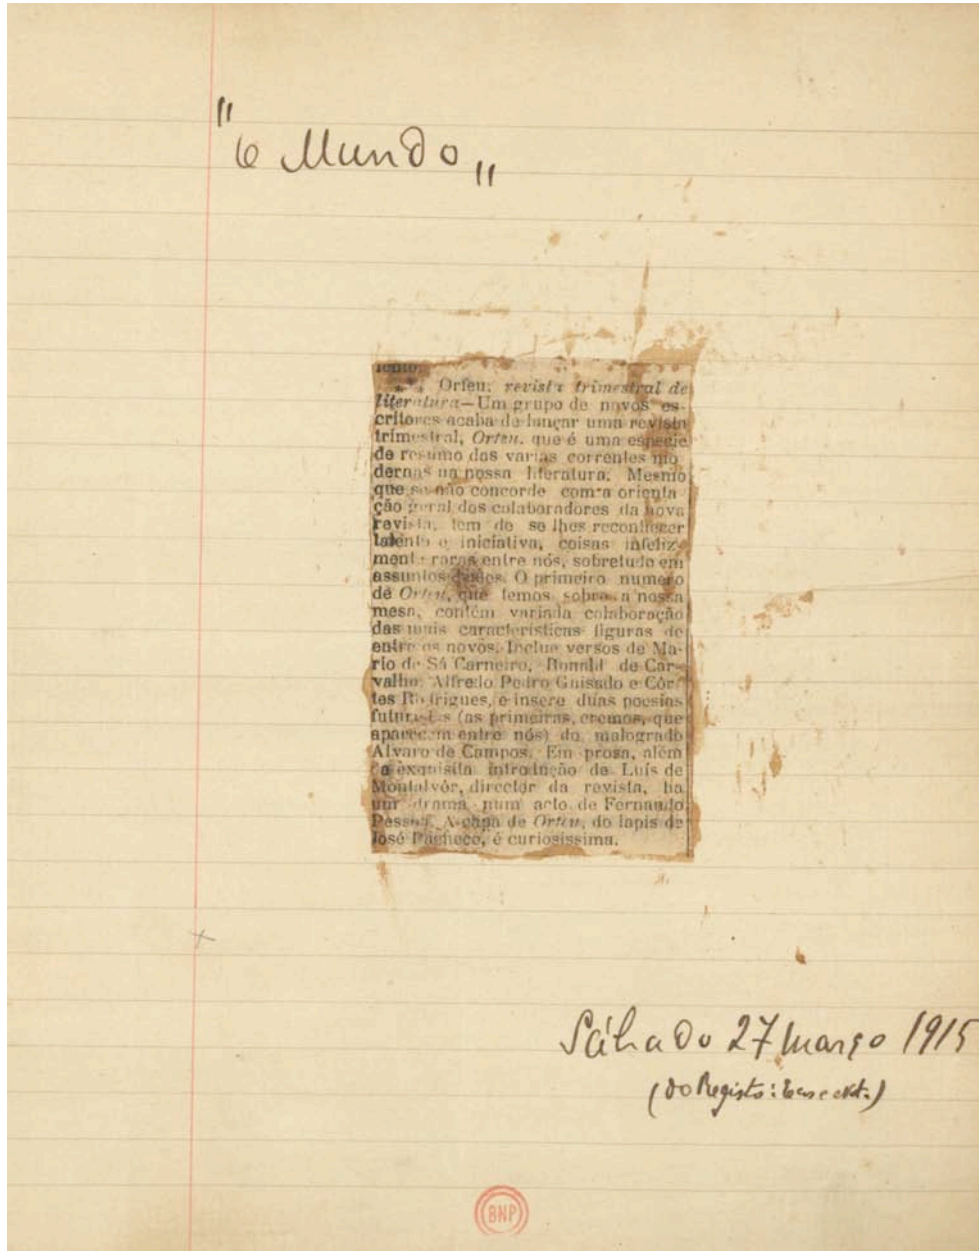 "O Mundo"
mento.
Orfeu, revista trimestral de
literatura—Um grupo de novos es-
critores acaba de lançar uma revista
trimestral, Orfeu, que é uma especie
de resumo das varias correntes mo-
dernas na nossa literatura. Mesmo
que se não concorde com a orienta-
ção geral dos colaboradores da nova
revista, tem de se lhes reconhecer
talento e iniciativa, coisas infeliz-
mente raras entre nós, sobretudo em
assuntos destes. O primeiro numero
de Orfeu, que temos sobre a nossa
mesa, contém variada colaboração
das mais características figuras de
entre os novos. Inclue versos de Ma-
rio de Sá Carneiro, Ronald de Car-
valho, Alfredo Pedro Guisado e Côr-
tes Rodrigues, e insere duas poesias
futuristas (as primeiras, cremos, que
aparecem entre nós) do malogrado
Alvaro de Campos. Em prosa, além
da exquisita introdução de Luís de
Montalvôr, director da revista, ha
um drama num acto de Fernando
Pessoa. A capa de Orfeu, do lapis de
José Pacheco, é curiosissima.
Sábado 27 Março 1915
(do Registo:
BNP